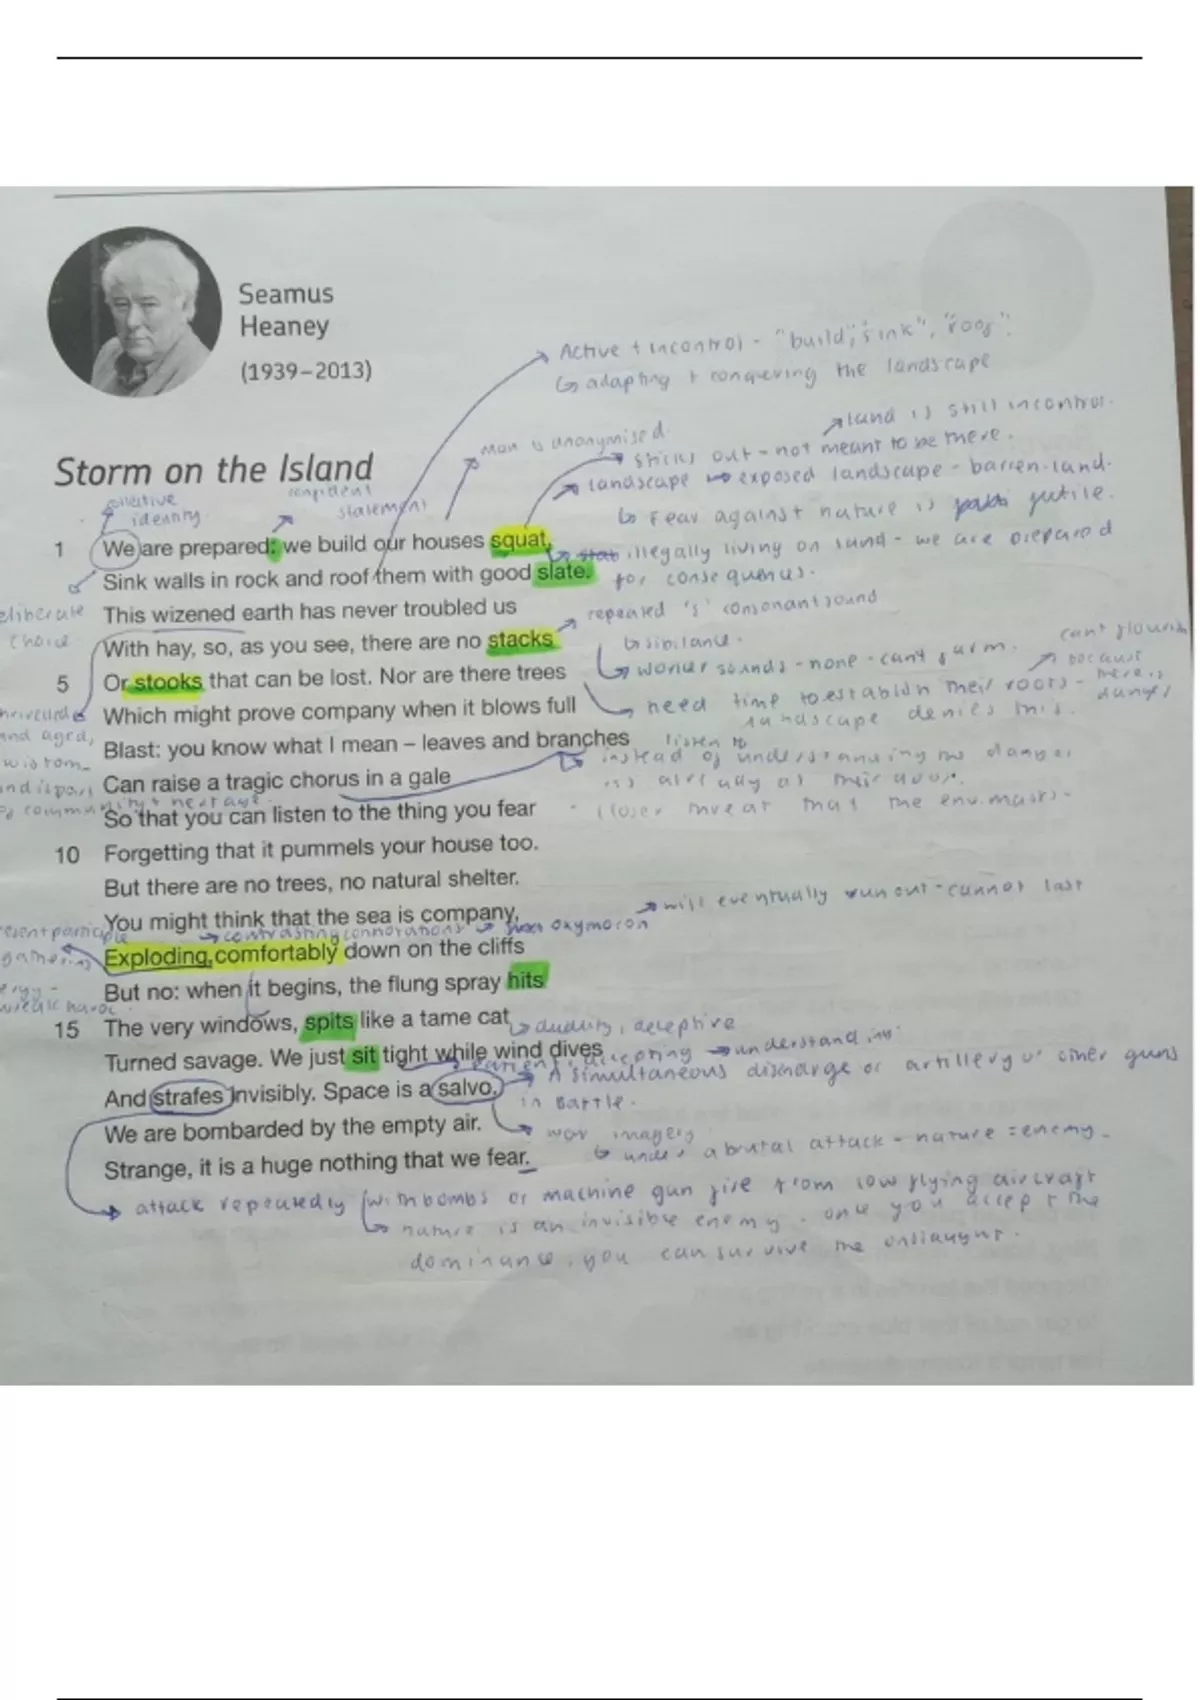 Seamus
Heaney
(1939–2013)
Active + incontrol - "build", "sink", "roof".
↳ adapting + conquering the landscape
land is still incontrol.
man is anonymised.
sticks out - not meant to be there.
Storm on the Island
landscape → exposed landscape - barren land.
collective
identity.
confident
statement
↳ Fear against nature is futile.
1 We are prepared: we build our houses squat,
illegally living on land - we are prepared
for consequences.
Sink walls in rock and roof them with good slate.
deliberate
choice
This wizened earth has never troubled us
repeated 's' consonant sound
↳ sibilance.
With hay, so, as you see, there are no stacks
can't flourish
because
there is
danger
5 Or stooks that can be lost. Nor are there trees
need time to establish their roots -
landscape denies this.
shrivelled
and aged,
wisdom
Which might prove company when it blows full
Blast: you know what I mean – leaves and branches
listen to
instead of understanding the danger
is already at their door.
Can raise a tragic chorus in a gale
So that you can listen to the thing you fear
closer threat that the env. masks -
10 Forgetting that it pummels your house too.
But there are no trees, no natural shelter.
will eventually run out - cannot last
You might think that the sea is company,
present participle
contrasting connotations → oxymoron
gathering
Exploding comfortably down on the cliffs
But no: when it begins, the flung spray hits
wreak havoc.
15 The very windows, spits like a tame cat
↳ duality, deceptive
Turned savage. We just sit tight while wind dives
patient, accepting → understanding
A simultaneous discharge of artillery or other guns
in battle.
And strafes invisibly. Space is a salvo.
We are bombarded by the empty air.
war imagery
↳ under a brutal attack - nature = enemy.
Strange, it is a huge nothing that we fear.
attack repeatedly (with bombs or machine gun fire from low flying aircraft
↳ nature is an invisible enemy. once you accept the
dominance, you can survive the onslaught.